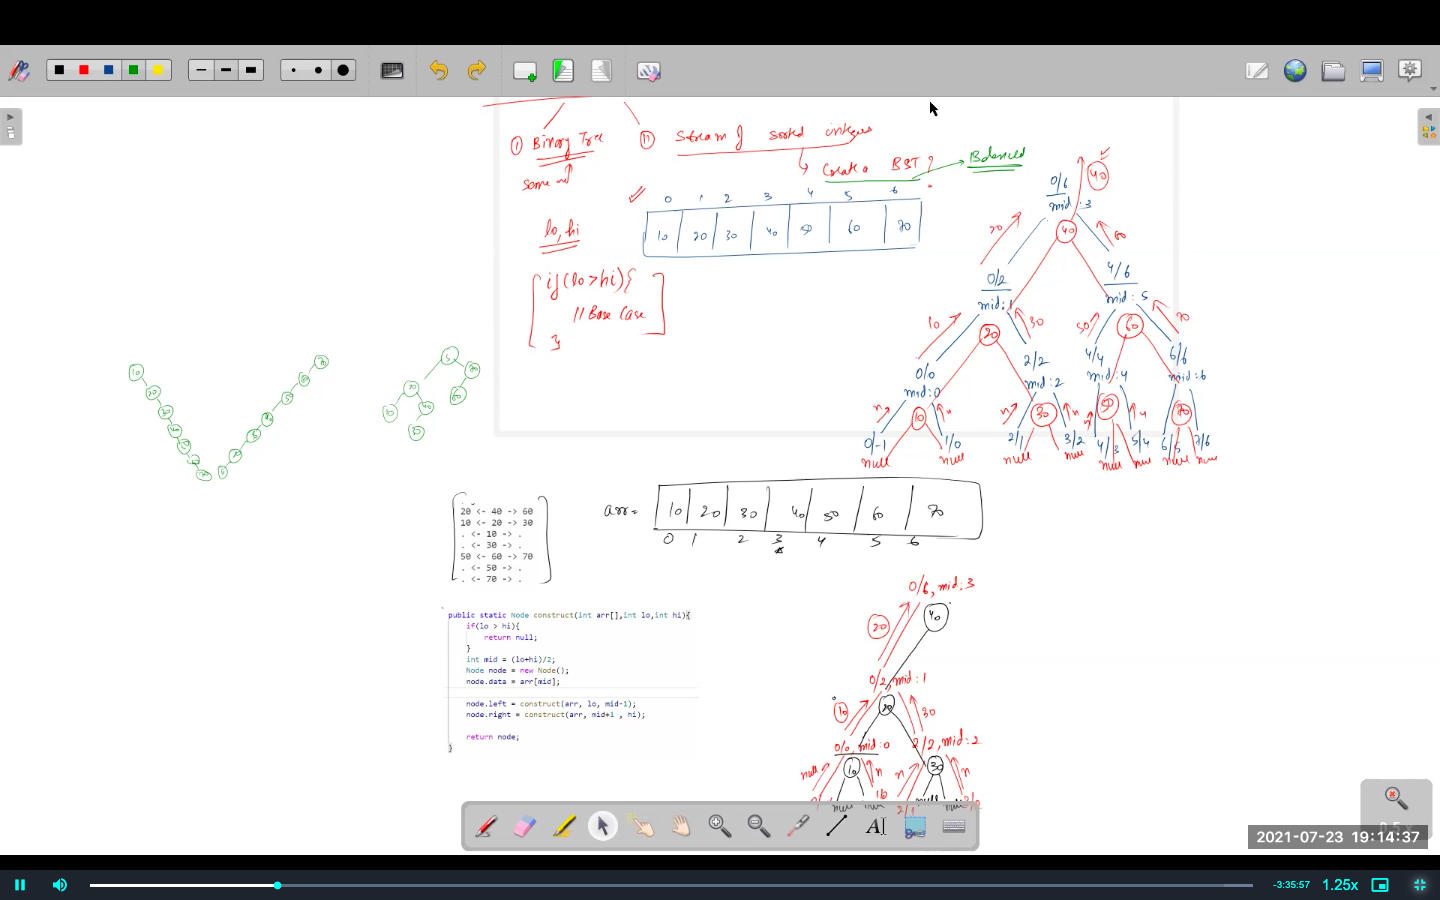 ① Binary Tree
⑪ Stream of sorted integers
Create a BST?
Balanced
0 1 2 3 4 5 6
10 20 30 40 50 60 70
lo, hi
if(lo>hi){
// Base Case
}
0/6
mid: 3
40
40
20
60
0/2
mid: 1
20
4/6
mid: 5
60
10
30
50
70
0/0
mid: 0
10
2/2
mid: 2
30
4/4
mid: 4
50
6/6
mid: 6
70
n n n n n
0/-1 1/0 2/1 3/2 4/3 5/4 6/5 7/6
null null null null null null null null
10
20
30
40
70
60
50
40
70
60
10
40
30
20 <- 40 -> 60
10 <- 20 -> 30
. <- 10 -> .
. <- 30 -> .
50 <- 60 -> 70
. <- 50 -> .
. <- 70 -> .
arr=
10 20 30 40 50 60 70
0 1 2 3 4 5 6
public static Node construct(int arr[],int lo,int hi){
if(lo > hi){
return null;
}
int mid = (lo+hi)/2;
Node node = new Node();
node.data = arr[mid];
node.left = construct(arr, lo, mid-1);
node.right = construct(arr, mid+1 , hi);
return node;
}
0/6, mid: 3
40
20
0/2, mid: 1
20
10
30
0/0, mid: 0
10
2/2, mid: 2
30
null n n n
null null
2/1
A
2021-07-23 19:14:37
-3:35:57
1.25x